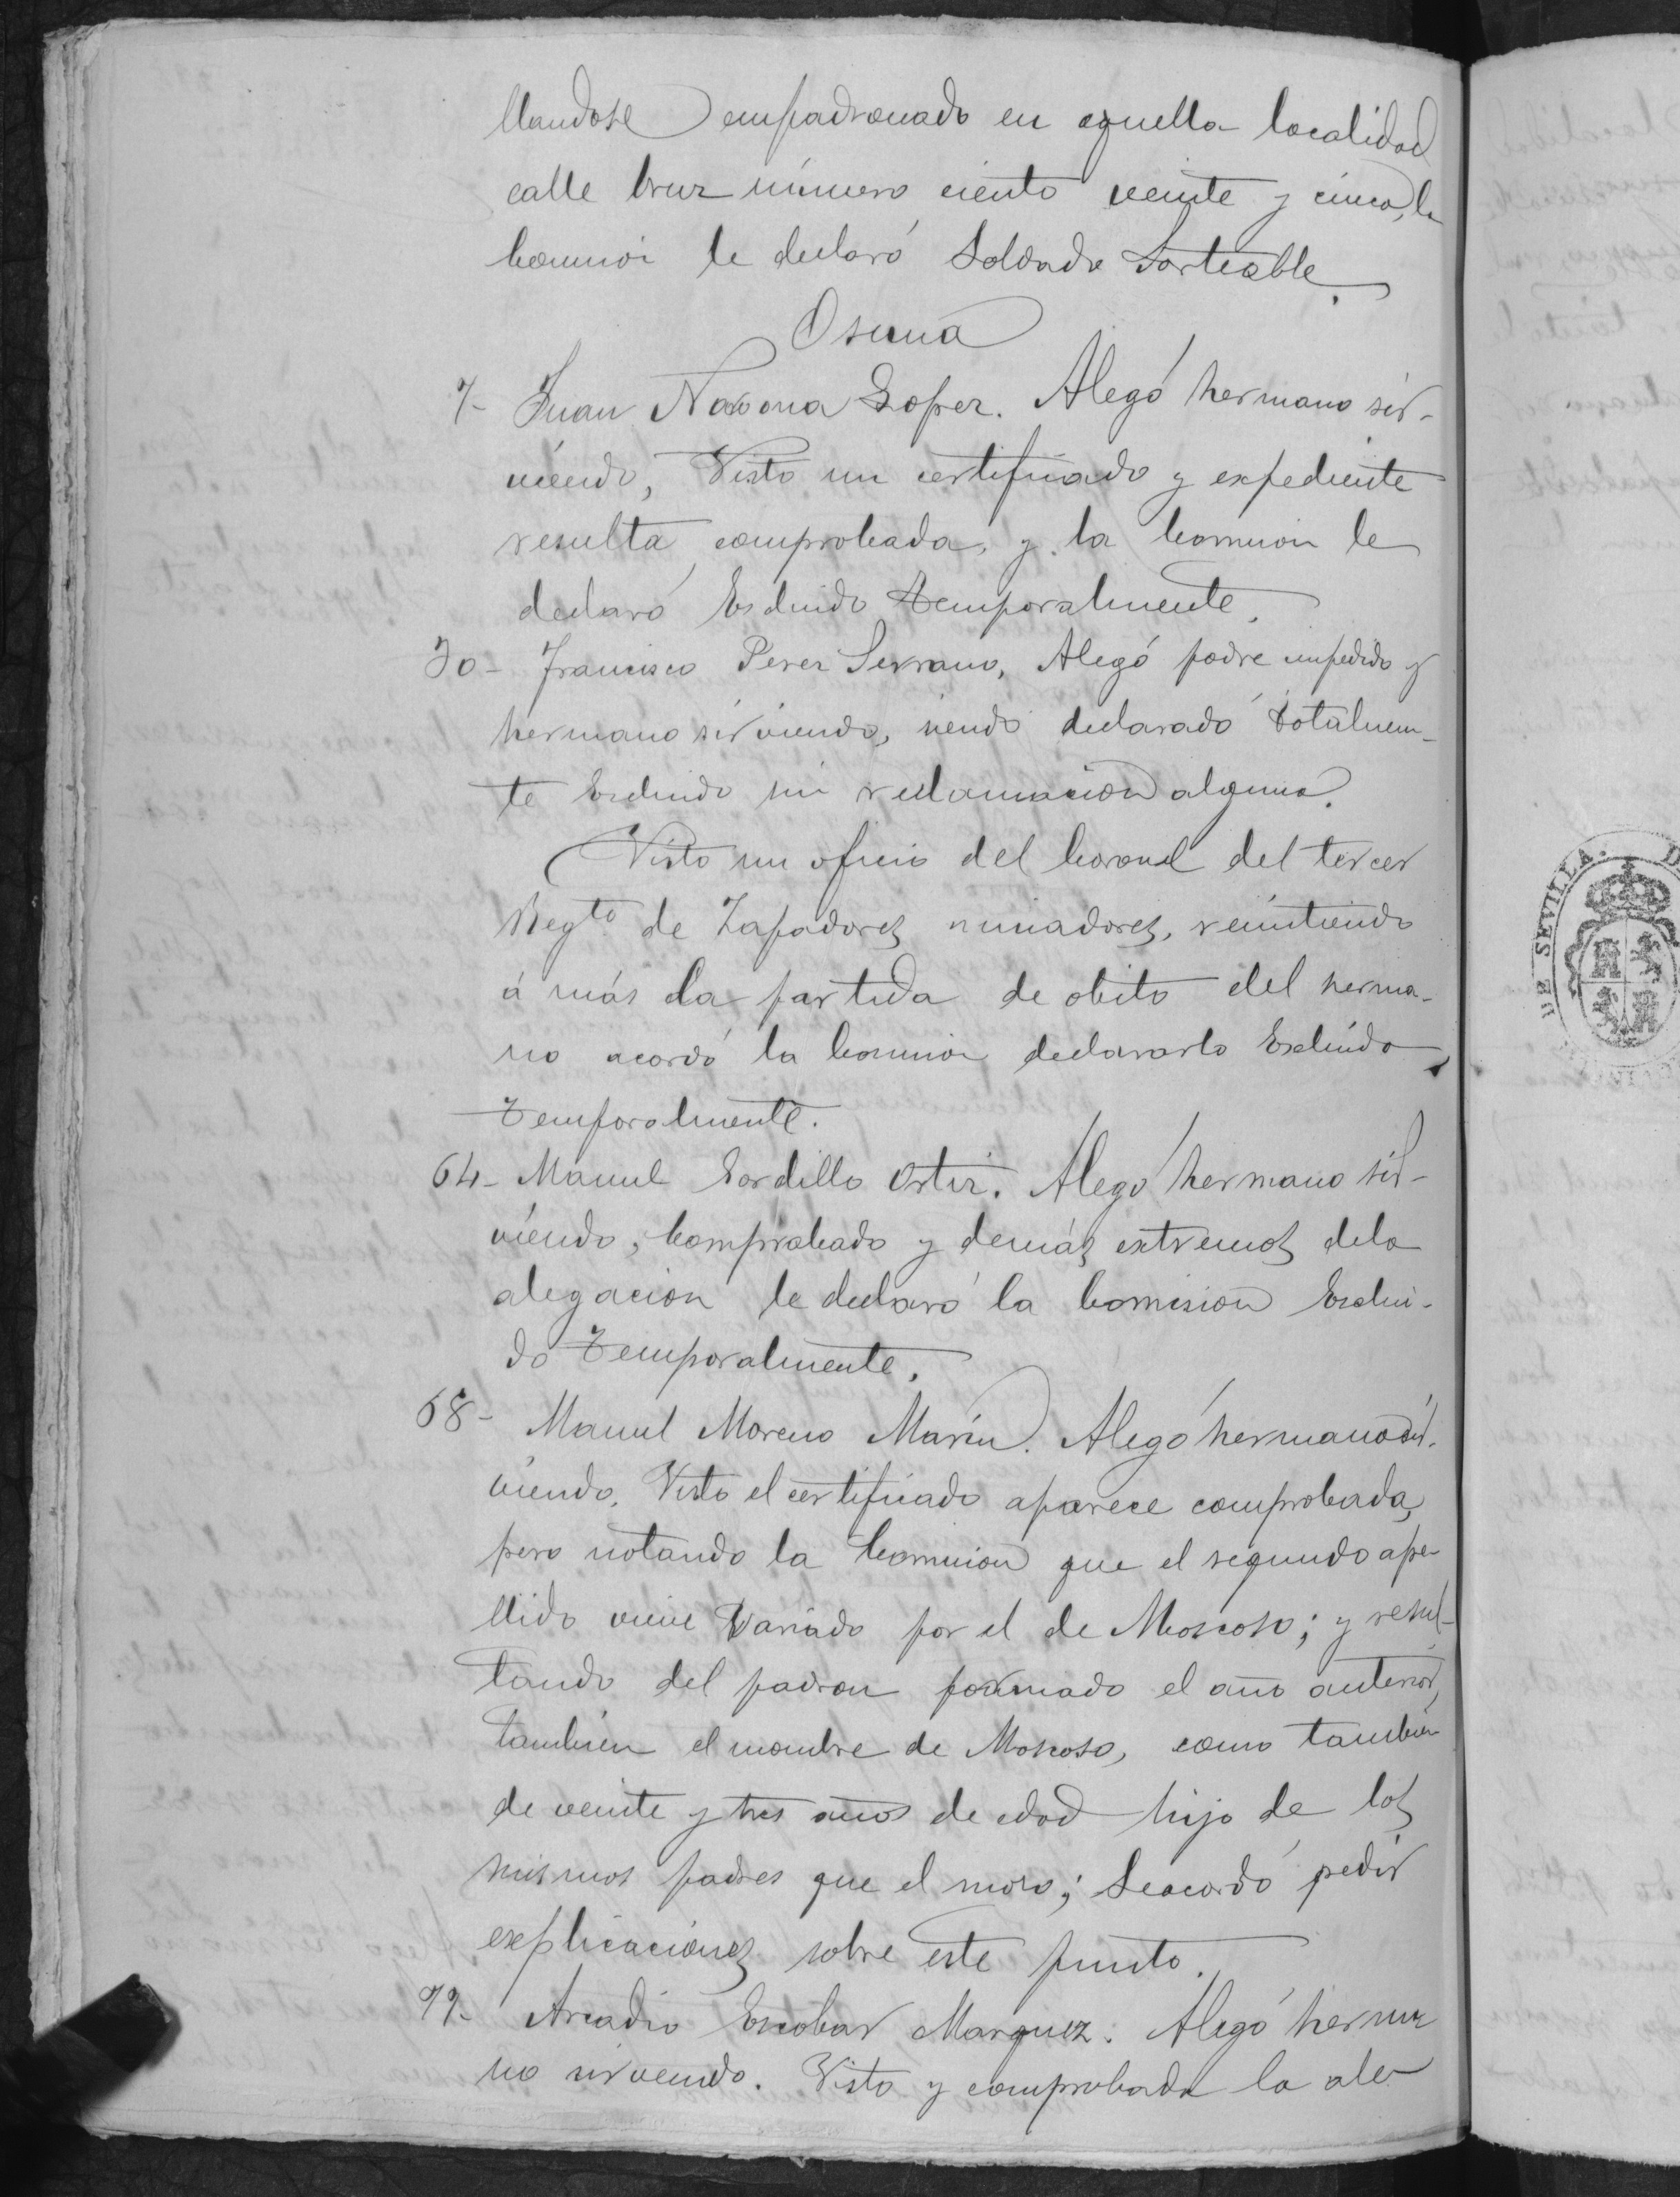 llandose empadronado en aquella localidad
calle Cruz número ciento veinte y cinco, la
Comision le declaró Soldado Sorteable.
Osuna
7- Juan Navona Lopez. Alegó hermano sir-
viendo, Visto un certificado y expediente
resulta comprobada, y la Comision le
declaró Escluido Temporalmente.
30- Francisco Perez Serrano, Alegó padre impedido y
hermano sirviendo, siendo declarado totalmen-
te Escluido sin reclamacion alguna.
Visto un oficio del Coronel del tercer
Regto de Zapadores minadores, remitiendo
á más la partida de obito del herma-
no acordó la Comision declararlo Escluido
Temporalmente.
64- Manuel Gordillo Ortiz. Alegó hermano sir-
viendo, Comprobado y demás extremos dela
alegacion le declaró la Comision Esclui-
do Temporalmente.
68- Manuel Moreno Marin. Alegó hermano sir-
viendo. Visto el certificado aparece comprobada,
pero notando la Comision que el segundo ape-
llido viene variado por el de Moscoso; y resul-
tando del padron formado el año anterior,
tambien el nombre de Moscoso, como tambien
de veinte y tres años de edad hijo de los
mismos padres que el mozo; Se acordó pedir
explicaciones sobre este punto.
79- Arcadio Escobar Marquez. Alegó herma
no sirviendo. Visto y comprobada la ale
DE SEVILLA.